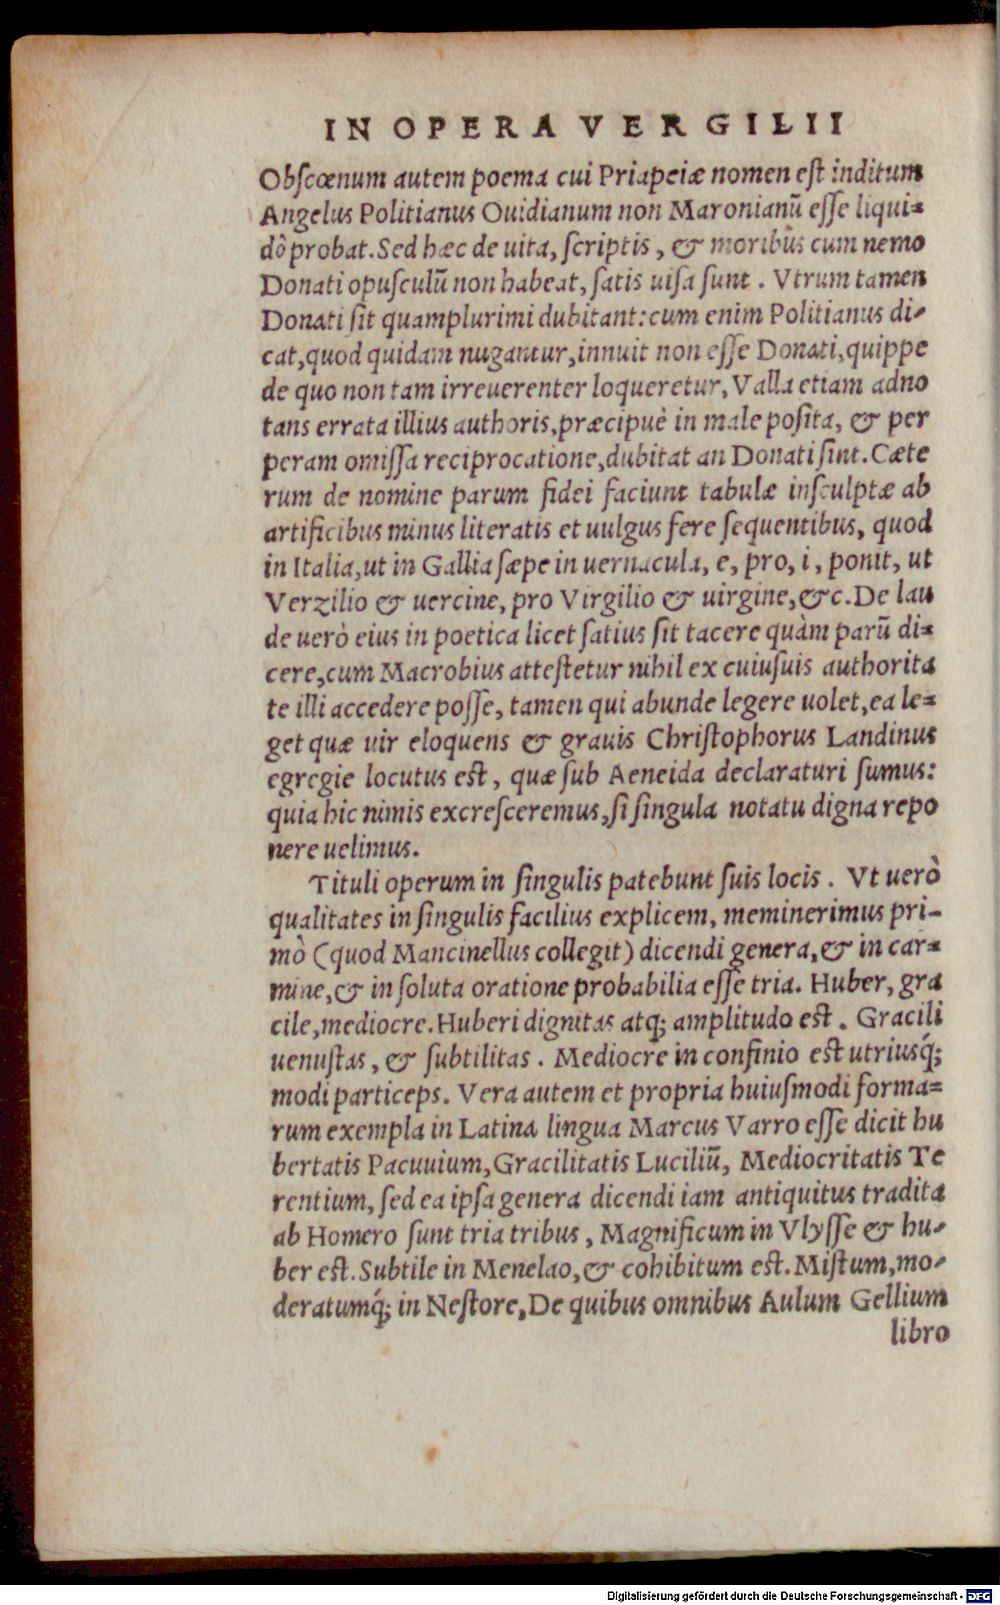 IN OPERA VERGILII
Obſcœnum autem poema cui Priapeiæ nomen eſt inditum
Angelus Politianus Ouidianum non Maronianū eſſe liqui=
dò probat. Sed hæc de uita, ſcriptis, & moribus cum nemo
Donati opuſculū non habeat, ſatis uiſa ſunt. Vtrum tamen
Donati ſit quamplurimi dubitant: cum enim Politianus di-
cat, quod quidam nugantur, innuit non eſſe Donati, quippe
de quo non tam irreuerenter loqueretur, Valla etiam adno
tans errata illius authoris, præcipuè in male poſita, & per
peram omiſſa reciprocatione, dubitat an Donati ſint. Cæte
rum de nomine parum fidei faciunt tabulæ inſculptæ ab
artificibus minus literatis et uulgus fere ſequentibus, quod
in Italia, ut in Gallia ſæpe in uernacula, e, pro, i, ponit, ut
Verzilio & uercine, pro Virgilio & uirgine, &c. De lau
de uerò eius in poetica licet ſatius ſit tacere quàm parū di=
cere, cum Macrobius atteſtetur nihil ex cuiuſuis authorita
te illi accedere poſſe, tamen qui abunde legere uolet, ea le=
get quæ uir eloquens & grauis Chriſtophorus Landinus
egregie locutus est, quæ ſub Aeneida declaraturi ſumus:
quia hic nimis excreſceremus, ſi ſingula notatu digna repo
nere uelimus.
Tituli operum in ſingulis patebunt ſuis locis. Vt uerò
qualitates in ſingulis facilius explicem, meminerimus pri-
mò (quod Mancinellus collegit) dicendi genera, & in car=
mine, & in ſoluta oratione probabilia eſſe tria. Huber, gra
cile, mediocre. Huberi dignitas atq; amplitudo eſt. Gracili
uenuſtas, & ſubtilitas. Mediocre in confinio eſt utriusq́;
modi particeps. Vera autem et propria huiuſmodi forma=
rum exempla in Latina lingua Marcus Varro eſſe dicit hu
bertatis Pacuuium, Gracilitatis Luciliū, Mediocritatis Te
rentium, ſed ea ipſa genera dicendi iam antiquitus tradita
ab Homero ſunt tria tribus, Magnificum in Vlyſſe & hu-
ber eſt. Subtile in Menelao, & cohibitum eſt. Miſtum, mo-
deratumq́; in Neſtore, De quibus omnibus Aulum Gellium
libro
Digitalisierung gefördert durch die Deutsche Forschungsgemeinschaft - DFG